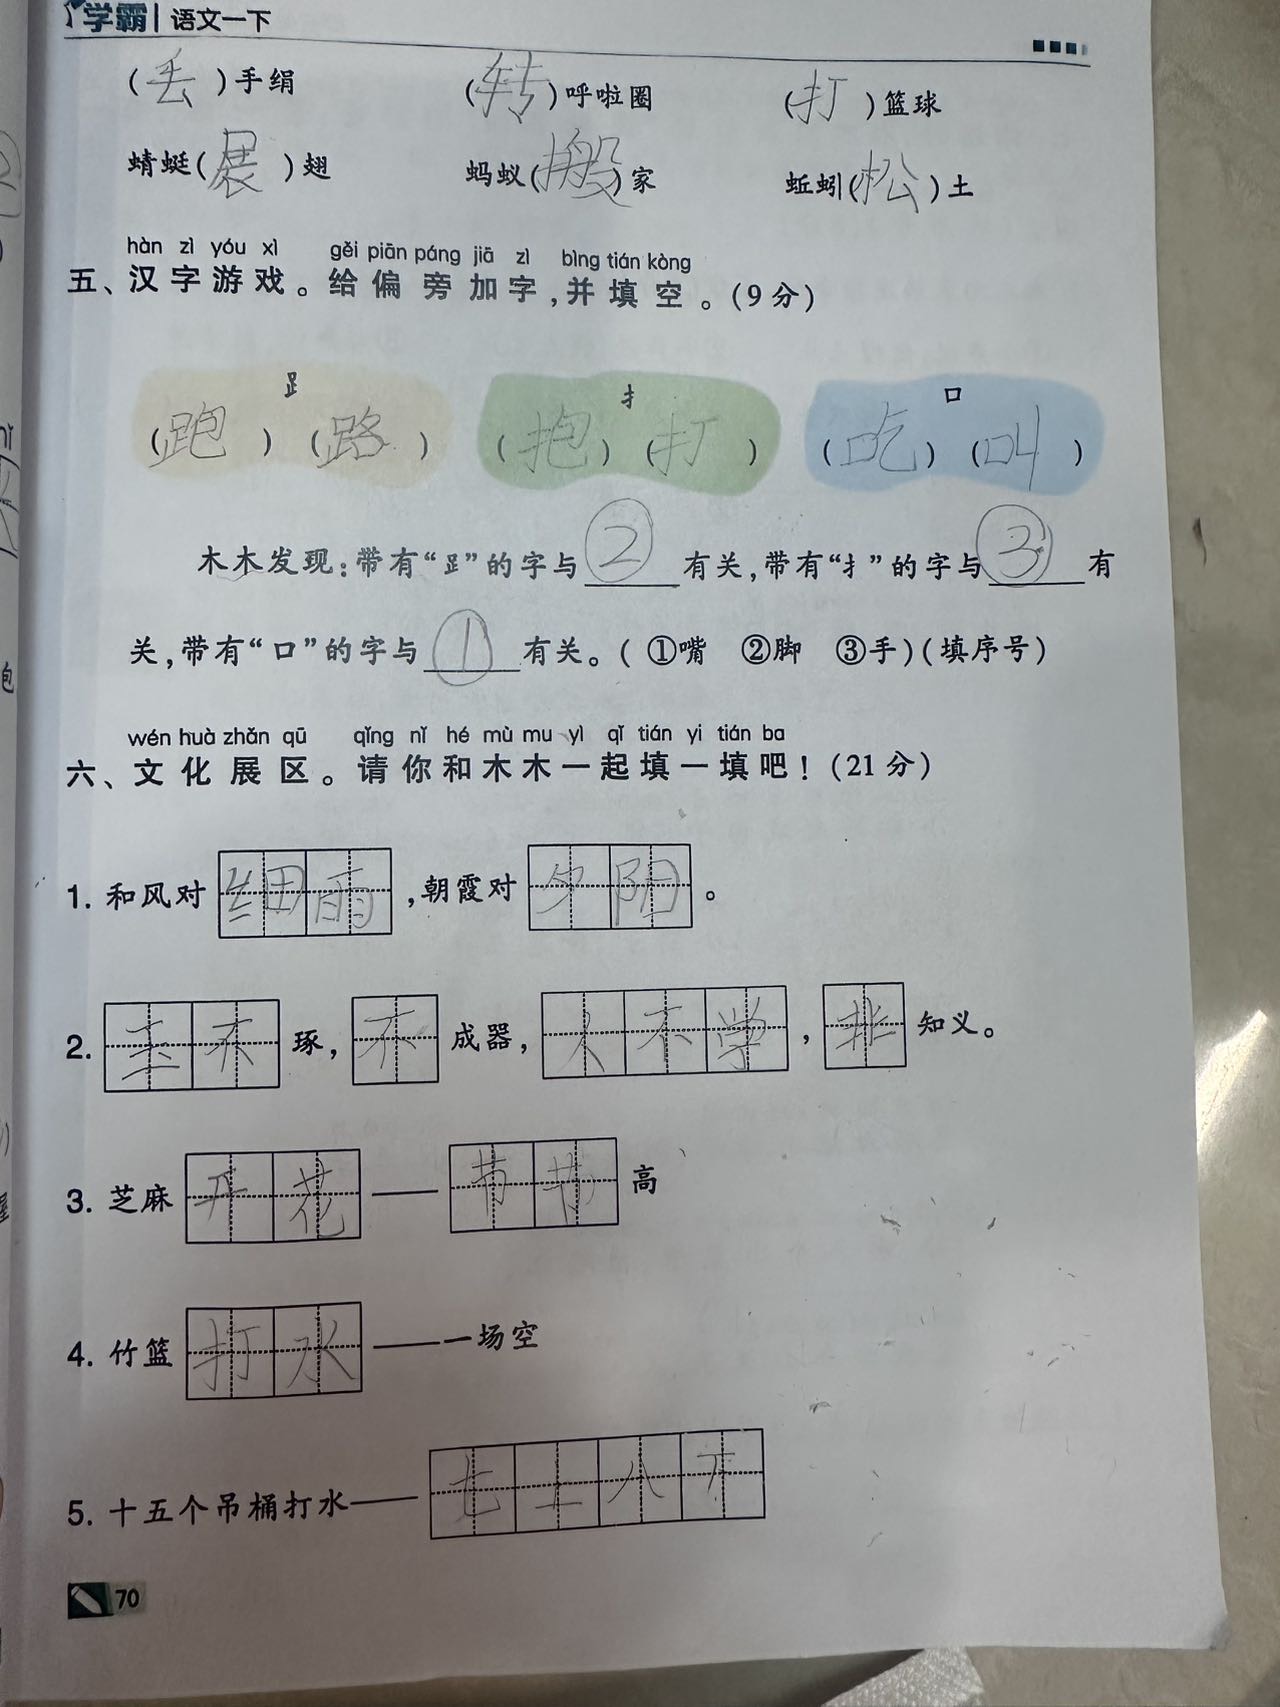 学霸 语文一下
(丢)手绢 (转)呼啦圈 (打)篮球
蜻蜓(展)翅 蚂蚁(搬)家 蚯蚓(松)土
hàn zì yóu xì gěi piān páng jiā zì bìng tián kòng
五、汉字游戏。给偏旁加字,并填空。(9分)
⻊ 扌 口
(跑) (路) (抱) (打) (吃) (叫)
木木发现:带有“⻊”的字与②有关,带有“扌”的字与③有
关,带有“口”的字与①有关。(①嘴 ②脚 ③手)(填序号)
wén huà zhǎn qū qǐng nǐ hé mù mu yì qǐ tián yi tián ba
六、文化展区。请你和木木一起填一填吧!(21分)
1. 和风对细雨,朝霞对夕阳。
2. 玉不琢,不成器,人不学,非知义。
3. 芝麻开花——节节高
4. 竹篮打水——一场空
5. 十五个吊桶打水——七上八下
70